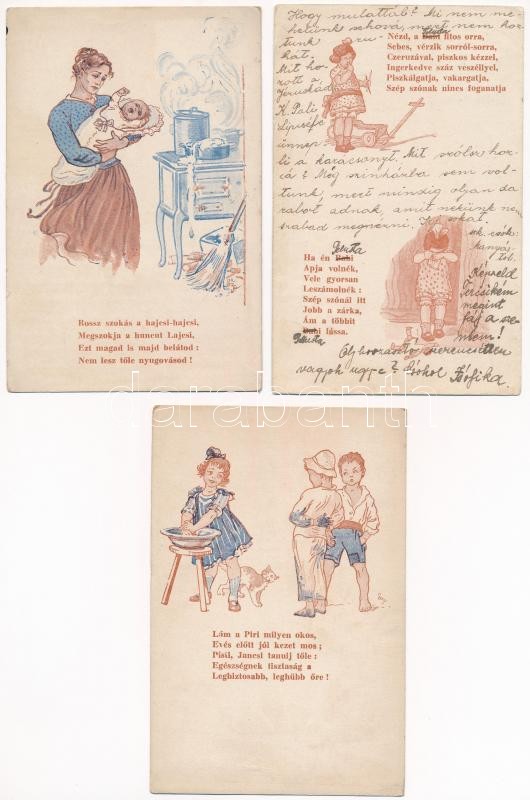 Rossz szokás a hajcsi-hajcsi,
Megszokja a huncut Lajcsi,
Ezt magad is majd belátod :
Nem lesz tőle nyugovásod !
Hogy mulattál? Mi nem me-
hettünk sehová, mert nem hoz-
tunk
hát.
Mit ho-
zott a
Jézuskád
K. Pali
ünnep-
li a karácsonyt. Mit szólsz hoz-
zá? Még színházba sem vol-
tunk, mert mindig olyan da-
rabot adnak, amit nekünk ne
szabad megnézni.
Nézd, a Babi fitos orra,
Sebes, vérzik sorról-sorra,
Czeruzával, piszkos kézzel,
Ingerkedve száz veszéllyel,
Piszkálgatja, vakargatja,
Szép szónak nincs foganatja
Petutka
Ha én Babi
Apja volnék,
Vele gyorsan
Leszámolnék :
Szép szónál itt
Jobb a zárka,
Ám a többit
Babi lássa.
Petutka
Képzeld
Tercsikém
megint
fáj a sze-
mem!
vagyok ugye? Csókol Zsófika
Lám a Piri milyen okos,
Evés előtt jól kezet mos ;
Pisti, Jancsi tanulj tőle :
Egészségnek tisztaság a
Legbiztosabb, leghűbb őre !
darabanth